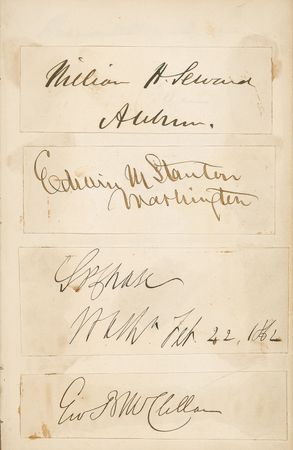 William H. Seward
Auburn.
Edwin M Stanton
Washington
S P Chase
Wash<sup>n</sup> Feb 22, 1862
Geo B McClellan